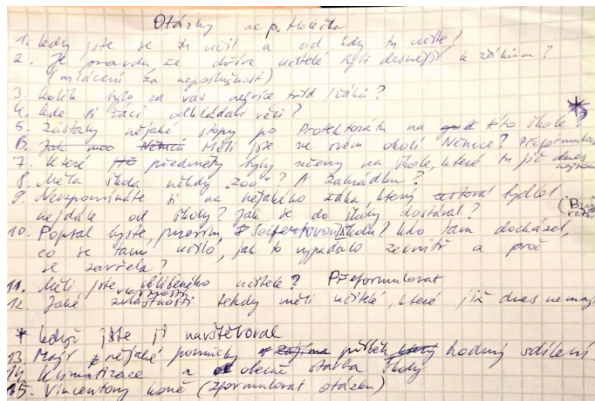 Otázky na p. Holečka
1. kdy jste se tu učil a od kdy tu učíte?
2. Je pravda že dříve učitelé byli drsnější k žákům?
(mlácení za neposlušnost)
3. kolik bylo za vás nejvíce tříd / žáků?
4. kde si žáci odkládali věci?
5. Zůstaly nějaké stopy po Protektorátu na této škole? *
6. Měli jste ve svém okolí Němce? Přeformulovat
7. které předměty byly učeny na škole, které tu již dnes nejsou
8. Měla škola někdy zoo? A zahrádku?
9. Nevzpomínáte si na nějakého žáka, který bydlel
nejdále od školy? Jak se do školy dostával?
10. Popsal byste prosím školu? kdo tam docházel,
co se tam učilo, jak to vypadalo zevnitř a proč
se zavřela?
11. Měli jste oblíbeného učitele? Přeformulovat
12. Jaké tehdy měli učitelé, které již dnes nemají
* když jste ji navštěvoval
13. Máte nějaké pomníky příběh hodný sdílení
14. klimatizace a obecně stavba školy
15. Vincentovy koně (zformulovat otázku)